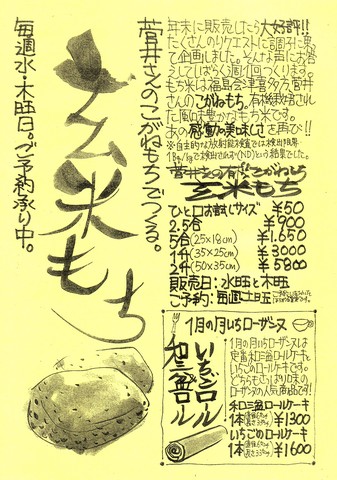 毎週水・木曜日。ご予約承り中。
玄米もち
菅井さんのこがねもちでつくる。
年末に販売したら大好評!!
たくさんのリクエストに調子に乗っ
て企画しました。そんな声にお答え
してしばらく週1回つくります。
もち米は福島会津喜多方、菅井
さんのこがねもち。有機栽培された
風味豊かなもち米です。
あの感動の美味しさを再び!!
※自主的な放射能検査では検出限界
1Bq/kgで検出されず(ND)という結果でした。
菅井さんの有機こがねもち
玄米もち
ひと口お試しサイズ ¥50
2.5合 ¥900
5合(25×18cm) ¥1,650
1升(35×25cm) ¥3000
2升(50×35cm) ¥5800
販売日:水曜と木曜
ご予約:毎週土曜
1月の月いちローザンヌ
いちごロール
和三盆ロール
1月の月いちローザンヌは
定番和三盆ロールケーキと
いちごのロールケーキです。
どちらもさっぱり味の
ローザンヌの人気商品です!!
和三盆ロールケーキ
1本 ¥1300
いちごのロールケーキ
1本 ¥1600